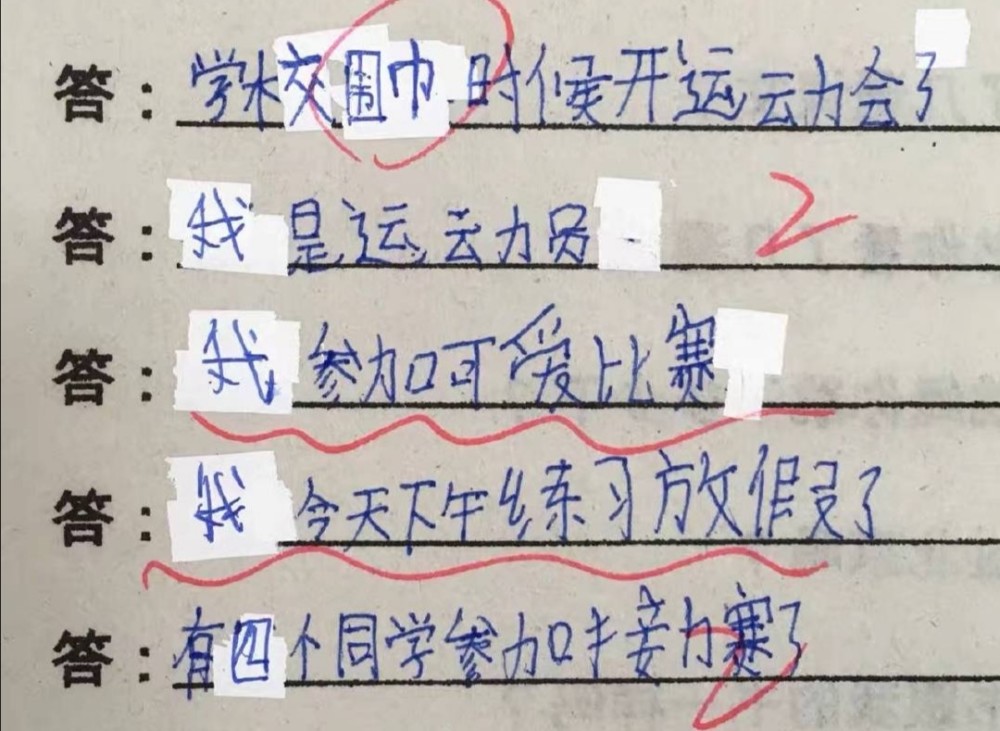 答：学校围巾时候开运动会了
答：我是运动员
答：我参加可爱比赛
答：我今天下午练习放假了
答：有四个同学参加接力赛了